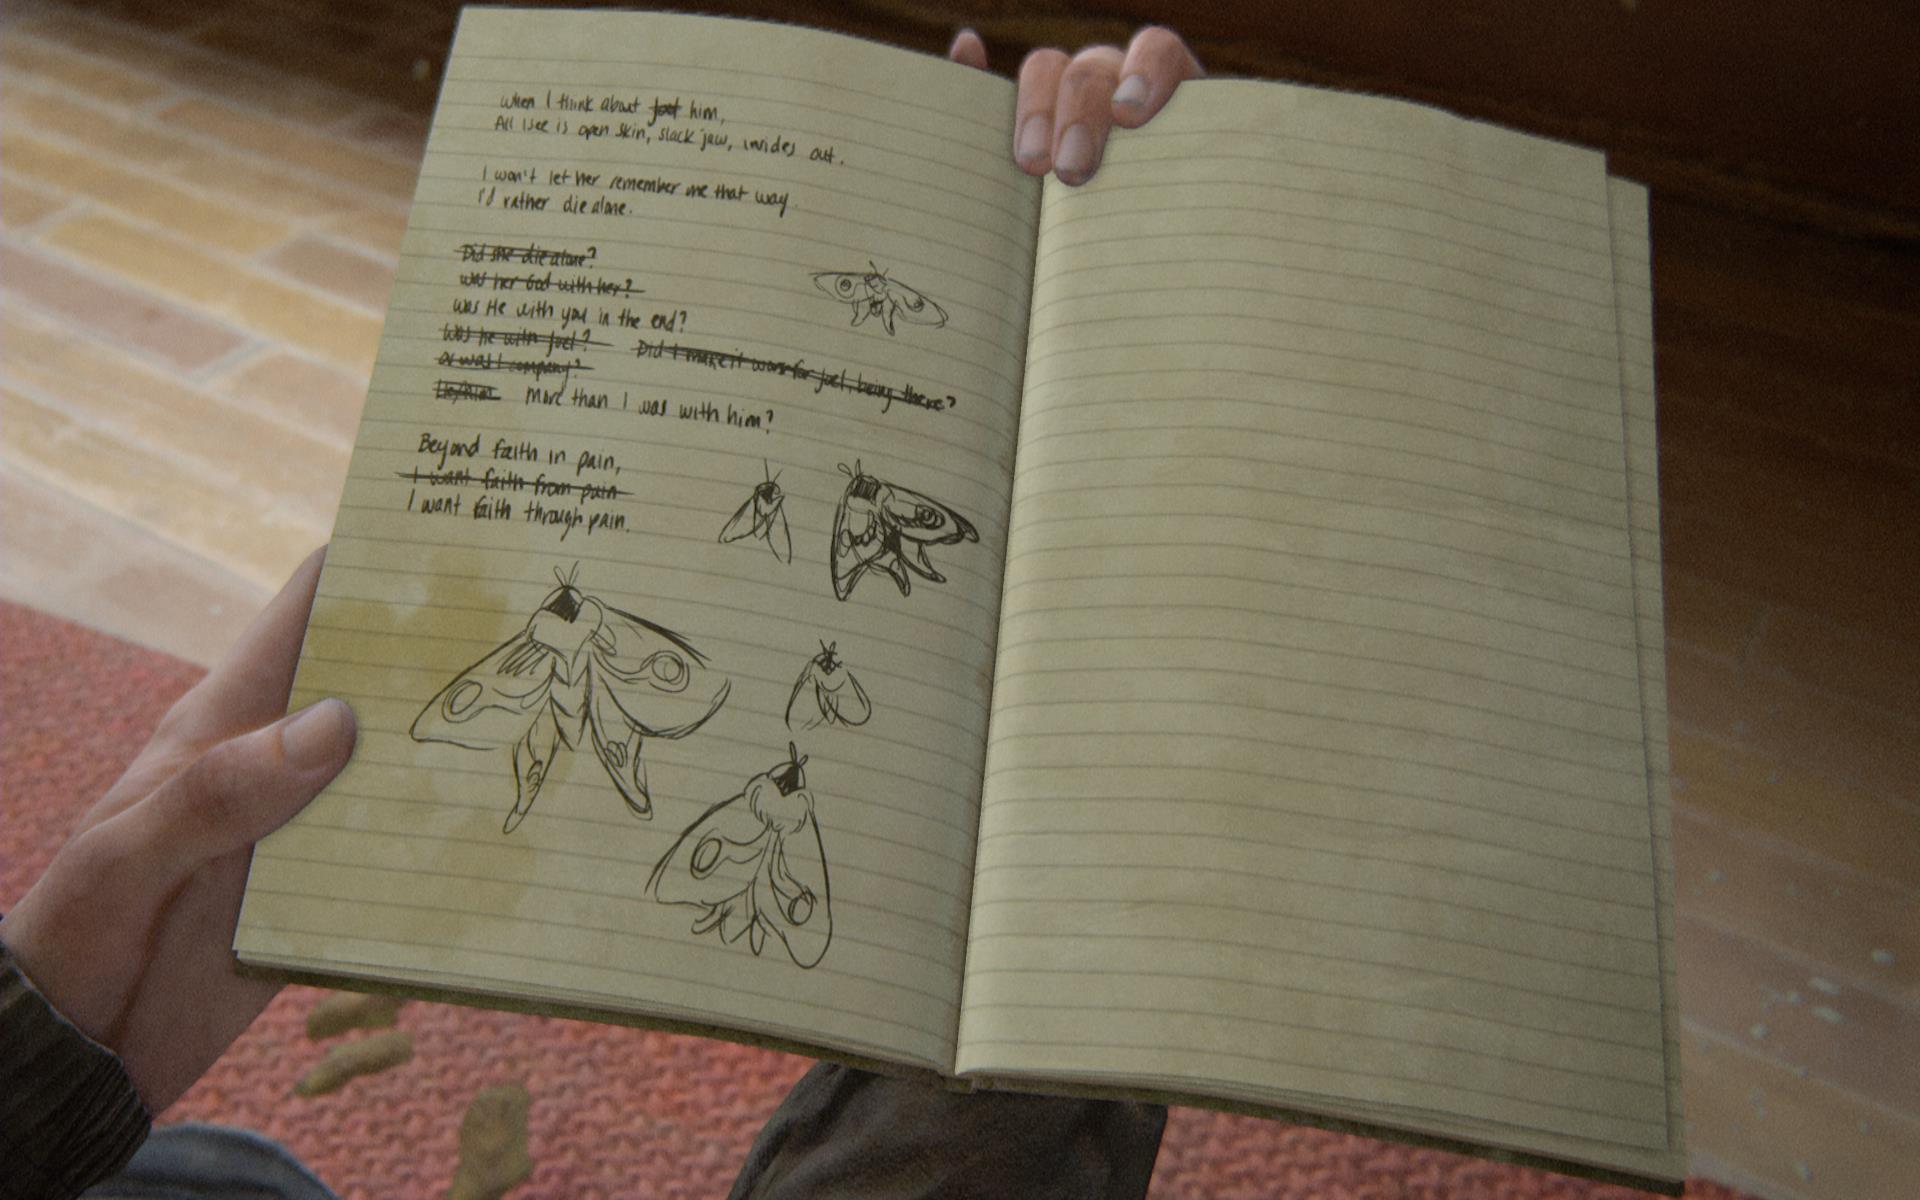 when I think about Joel him,
All I see is open skin, slack jaw, insides out.
I won't let her remember me that way.
I'd rather die alone.
Did she die alone?
was her God with her?
was He with you in the end?
Was he with Joel?
Did I make it worse for Joel, being there?
or was I company?
More than I was with him?
Beyond faith in pain,
I want faith from pain
I want faith through pain.